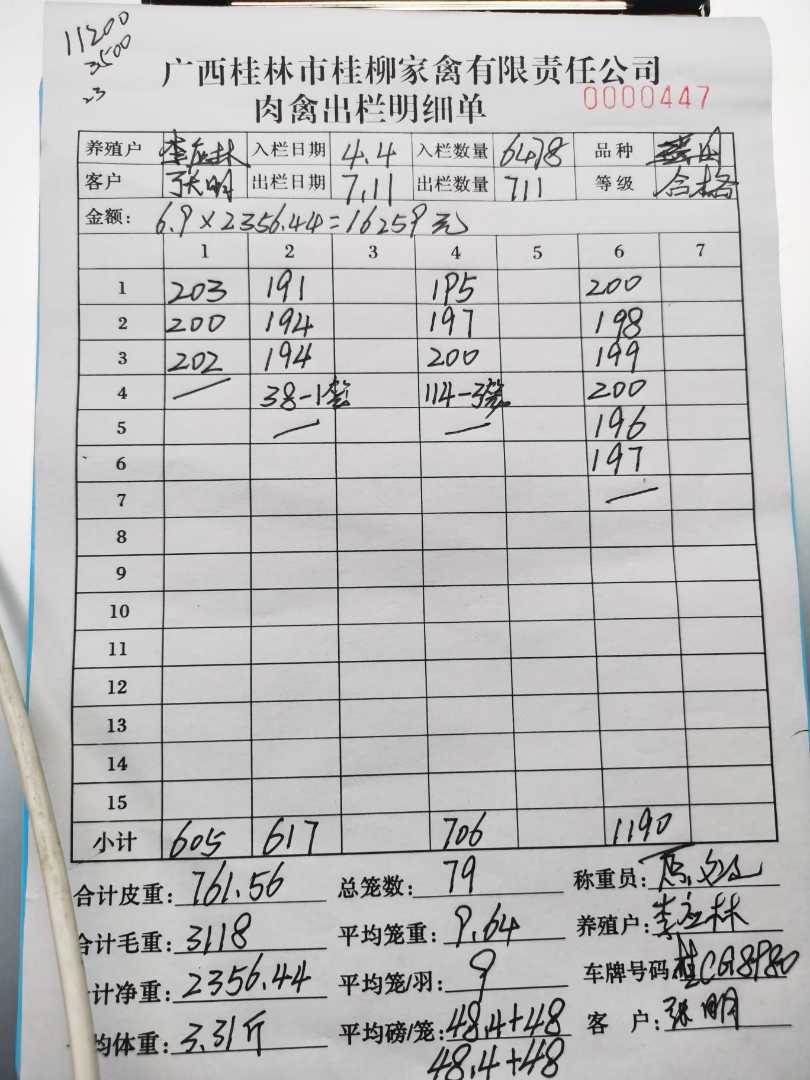 11200
3500
23
广西桂林市桂柳家禽有限责任公司
肉禽出栏明细单 0000447
养殖户 李应林 入栏日期 4.4 入栏数量 6478 品种
客户 张明 出栏日期 7.11 出栏数量 711 等级 合格
金额: 6.9×2356.44=16259元
1 2 3 4 5 6 7
1 203 191 195 200
2 200 194 197 198
3 202 194 200 199
4 38-1笼 114-3笼 200
5 196
6 197
7
8
9
10
11
12
13
14
15
小计 605 617 706 1190
合计皮重: 761.56 总笼数: 79 称重员:
合计毛重: 3118 平均笼重: 9.64 养殖户: 李应林
计净重: 2356.44 平均笼/羽: 9 车牌号码: 桂CG8980
均体重: 3.31斤 平均磅/笼: 48.4+48 客户: 张明
48.4+48